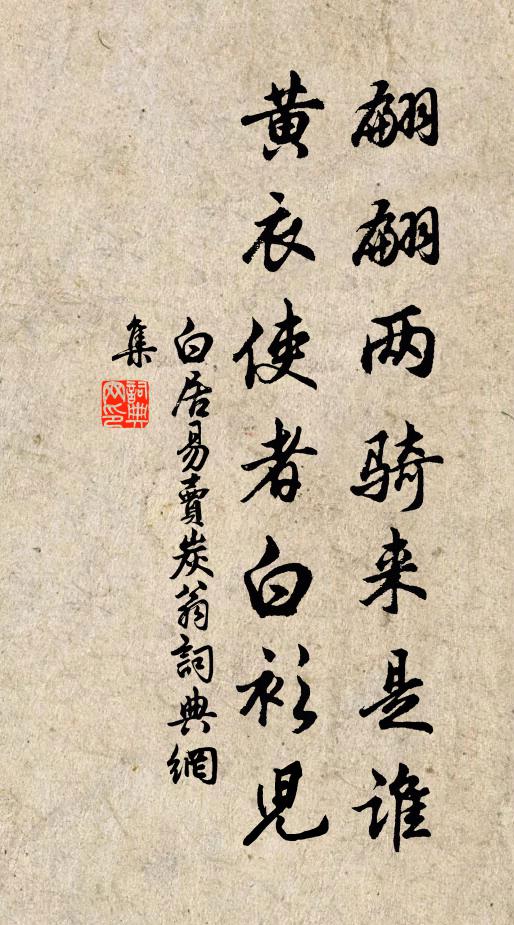 翩翩两骑来是谁
黄衣使者白衫儿
白居易賣炭翁詞典網
集
詞典
网印